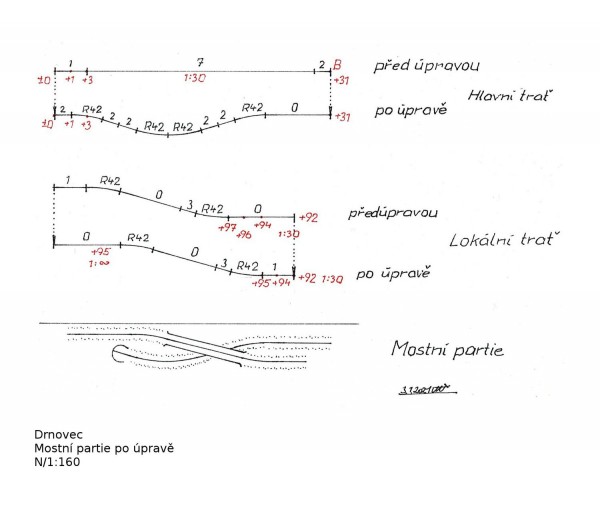 1 7 2 B před úpravou
±0 +1 +3 1:30 +31
Hlavní trať
2 R42 2 2 R42 R42 2 2 R42 0 po úpravě
±0 +1 +3 +31
1 R42 0 3 R42 0 +92 před úpravou
+97 +96 +94 1:30
Lokální trať
0 R42 0 3 R42 1 +92 1:30 po úpravě
+95 1:∞ +95 +94
Mostní partie
Drnovec
Mostní partie po úpravě
N/1:160